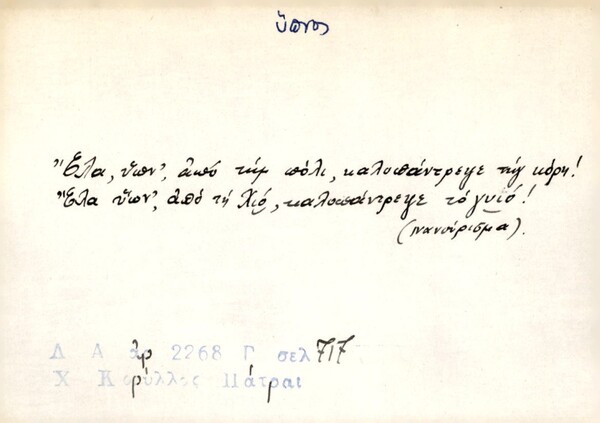 ὕπνος
Ἔλα, ὕπν', ἀπό τήμ πόλι, καλοπάντρεψε τήγ κόρη!
Ἔλα ὕπν', ἀπό τή Χιό, καλοπάντρεψε τό γυιό!
(νανούρισμα).
Λ Α ἀρ 2268 Γ σελ 717
Χ Κορύλλος Πάτραι